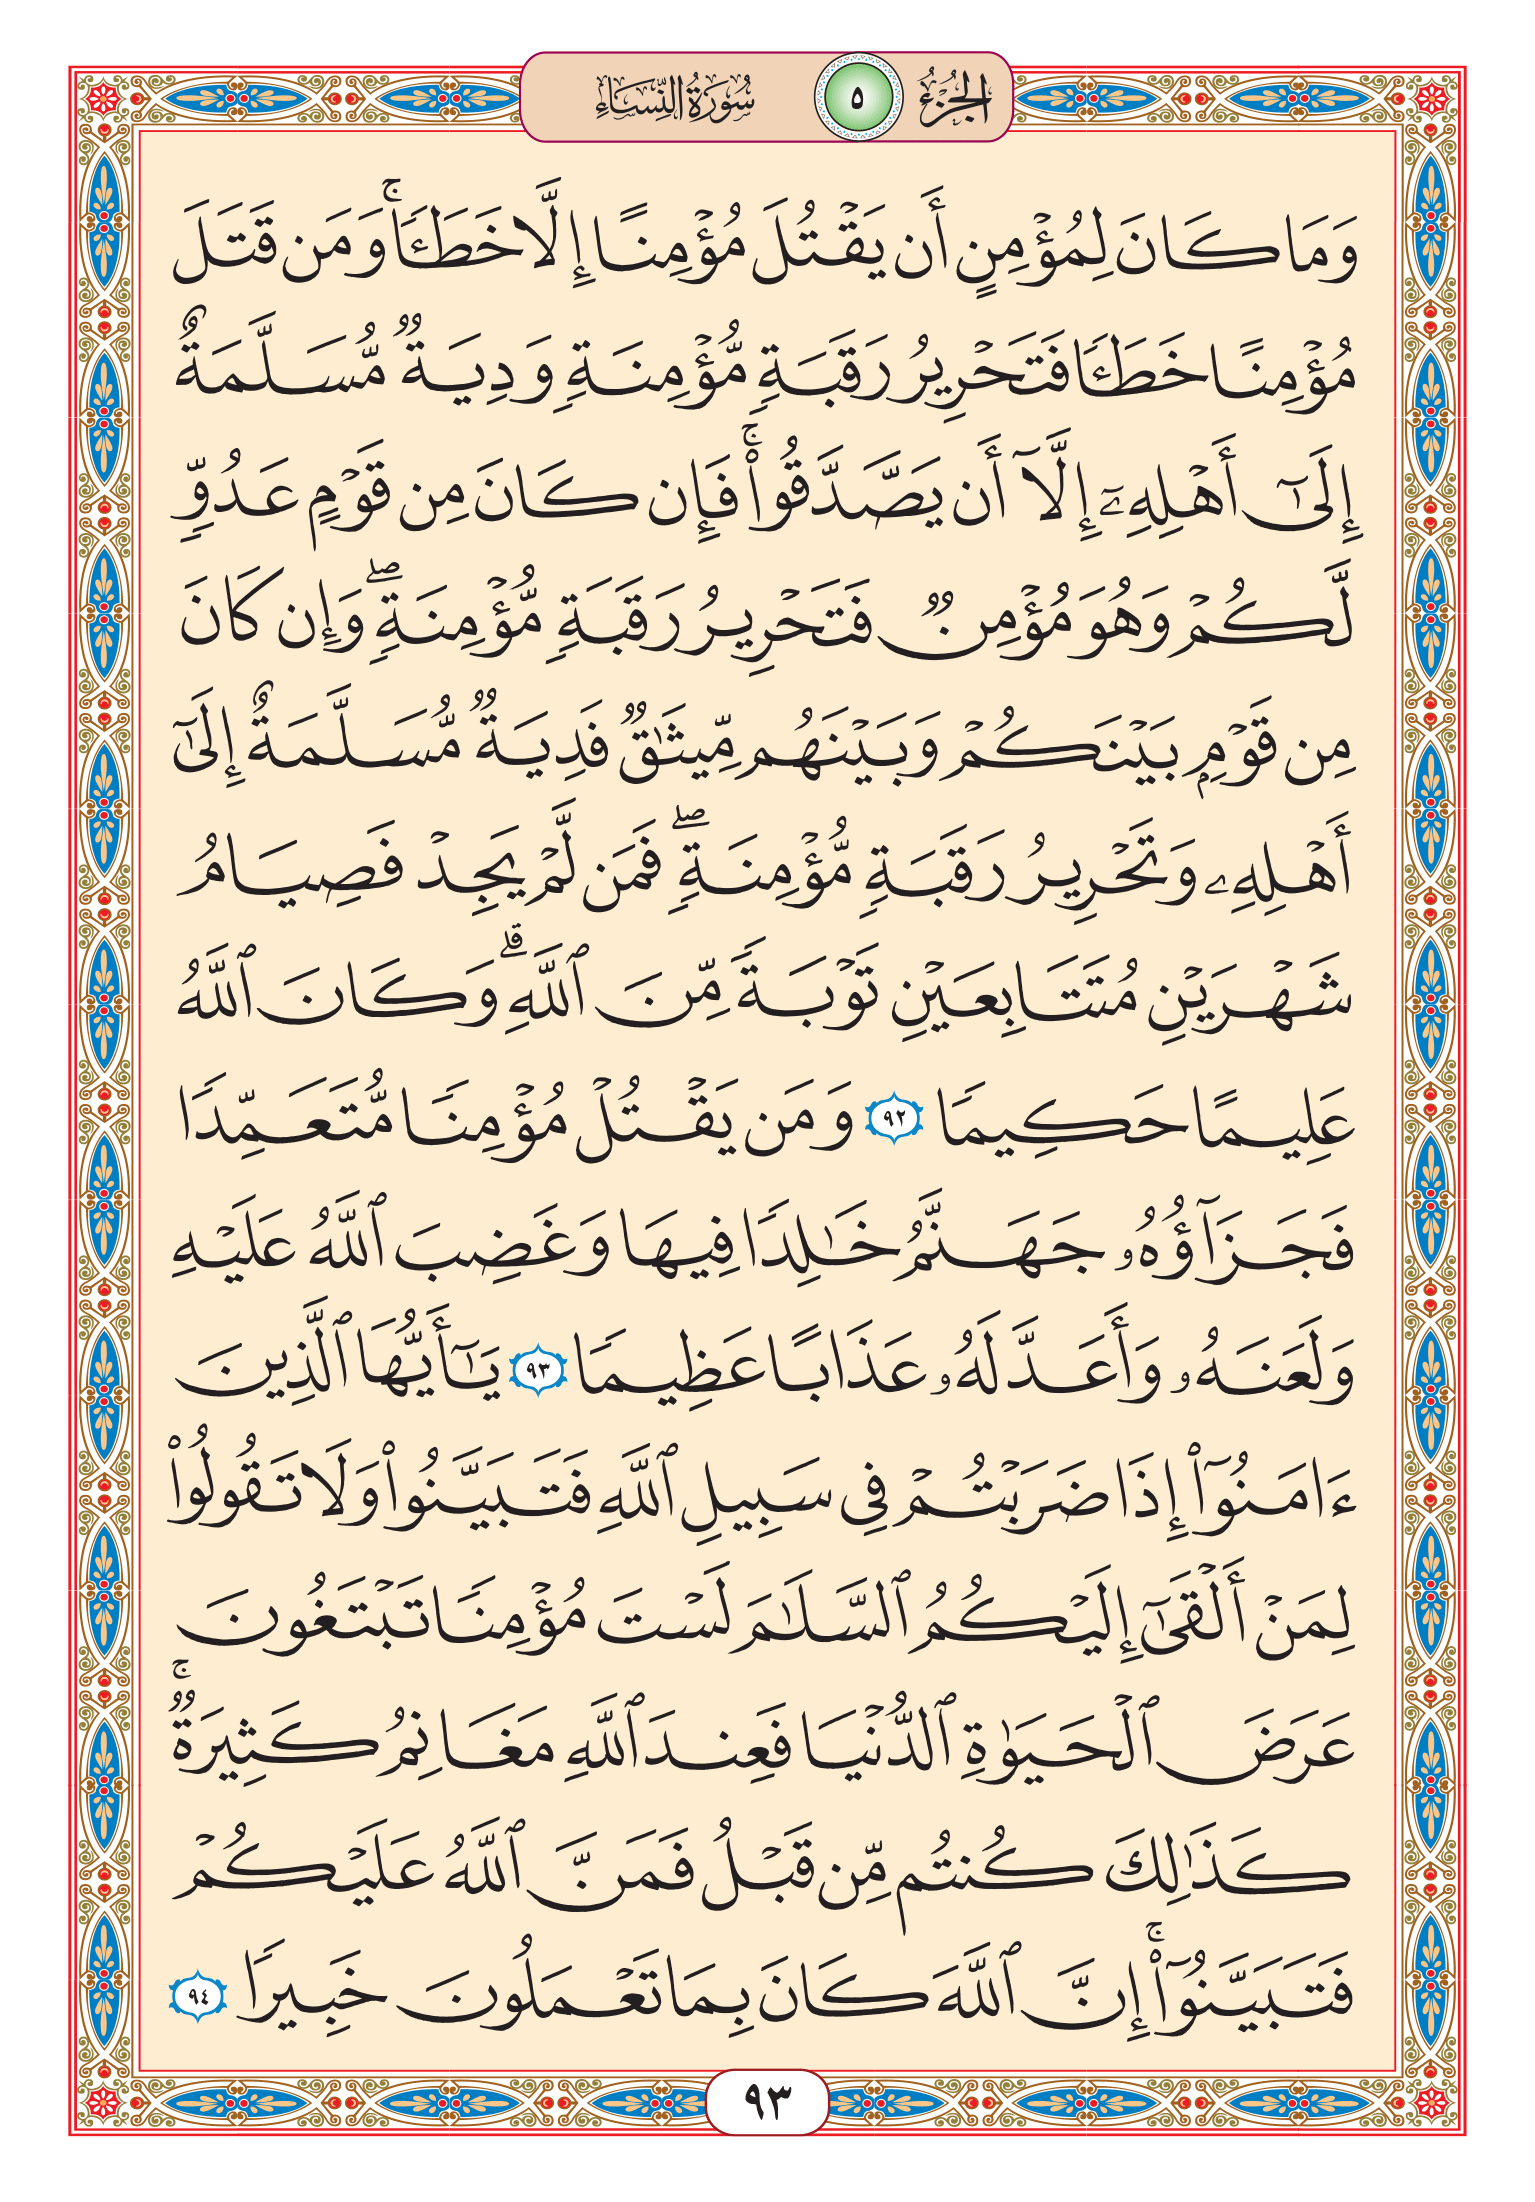 الجزء ٥ سورة النساء
وَمَا كَانَ لِمُؤْمِنٍ أَن يَقْتُلَ مُؤْمِنًا إِلَّا خَطَـًٔا ۚ وَمَن قَتَلَ
مُؤْمِنًا خَطَـًٔا فَتَحْرِيرُ رَقَبَةٍ مُّؤْمِنَةٍ وَدِيَةٌ مُّسَلَّمَةٌ
إِلَىٰٓ أَهْلِهِۦٓ إِلَّآ أَن يَصَّدَّقُوا۟ ۚ فَإِن كَانَ مِن قَوْمٍ عَدُوٍّ
لَّكُمْ وَهُوَ مُؤْمِنٌ فَتَحْرِيرُ رَقَبَةٍ مُّؤْمِنَةٍ ۖ وَإِن كَانَ
مِن قَوْمٍۭ بَيْنَكُمْ وَبَيْنَهُم مِّيثَـٰقٌ فَدِيَةٌ مُّسَلَّمَةٌ إِلَىٰٓ
أَهْلِهِۦ وَتَحْرِيرُ رَقَبَةٍ مُّؤْمِنَةٍ ۖ فَمَن لَّمْ يَجِدْ فَصِيَامُ
شَهْرَيْنِ مُتَتَابِعَيْنِ تَوْبَةً مِّنَ ٱللَّهِ ۗ وَكَانَ ٱللَّهُ
عَلِيمًا حَكِيمًا ٩٢ وَمَن يَقْتُلْ مُؤْمِنًا مُّتَعَمِّدًا
فَجَزَآؤُهُۥ جَهَنَّمُ خَـٰلِدًا فِيهَا وَغَضِبَ ٱللَّهُ عَلَيْهِ
وَلَعَنَهُۥ وَأَعَدَّ لَهُۥ عَذَابًا عَظِيمًا ٩٣ يَـٰٓأَيُّهَا ٱلَّذِينَ
ءَامَنُوٓا۟ إِذَا ضَرَبْتُمْ فِى سَبِيلِ ٱللَّهِ فَتَبَيَّنُوا۟ وَلَا تَقُولُوا۟
لِمَنْ أَلْقَىٰٓ إِلَيْكُمُ ٱلسَّلَـٰمَ لَسْتَ مُؤْمِنًا تَبْتَغُونَ
عَرَضَ ٱلْحَيَوٰةِ ٱلدُّنْيَا فَعِندَ ٱللَّهِ مَغَانِمُ كَثِيرَةٌ ۚ
كَذَٰلِكَ كُنتُم مِّن قَبْلُ فَمَنَّ ٱللَّهُ عَلَيْكُمْ
فَتَبَيَّنُوٓا۟ ۚ إِنَّ ٱللَّهَ كَانَ بِمَا تَعْمَلُونَ خَبِيرًا ٩٤
٩٣